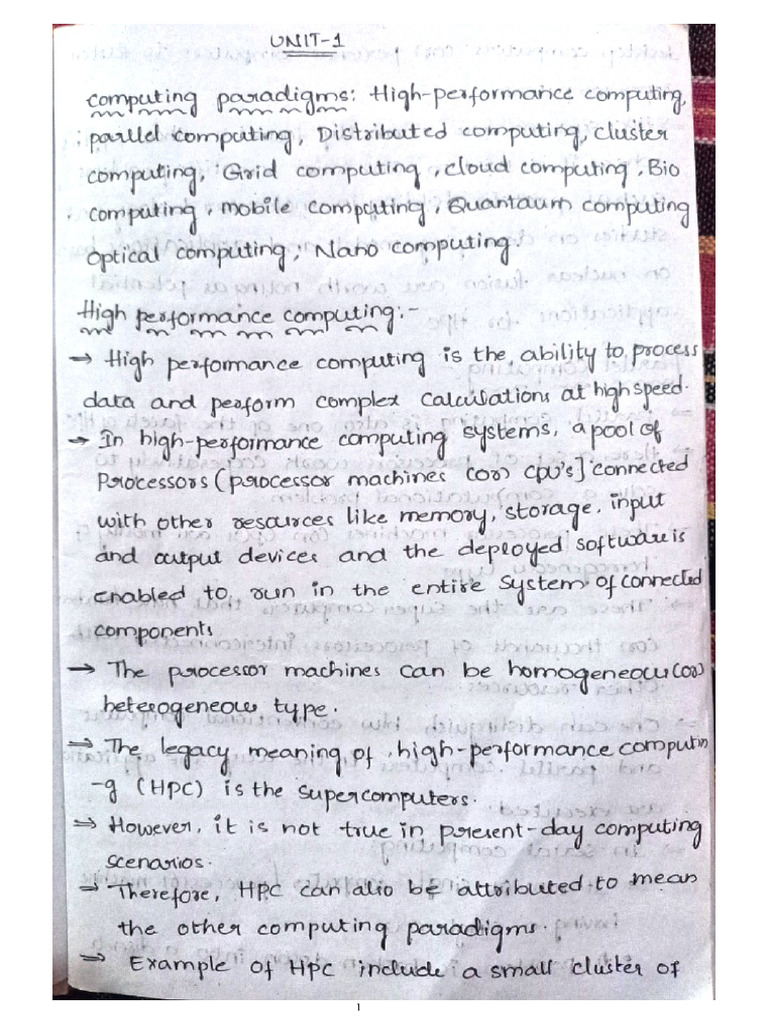 UNIT-1
computing paradigms: High-performance computing,
parllel computing, Distributed computing, cluster
computing, Grid computing, cloud computing, Bio
computing, mobile computing, Quantaum computing
optical computing, Nano computing.
High performance computing:-
→ High performance computing is the ability to process
data and perform complex calculations at high speed.
→ In high-performance computing systems, a pool of
Processors (processor machines (or) CPU's] connected
with other resources like memory, storage, input
and output devices and the deployed software is
enabled to run in the entire system of connected
components
→ The processor machines can be homogeneous (or)
heterogeneous type.
→ The legacy meaning of high-performance computin
-g (HPC) is the supercomputers.
→ However, it is not true in present-day computing
scenarios.
→ Therefore, HPC can also be attributed to mean
the other computing paradigms.
→ Example of HPC include a small cluster of
1